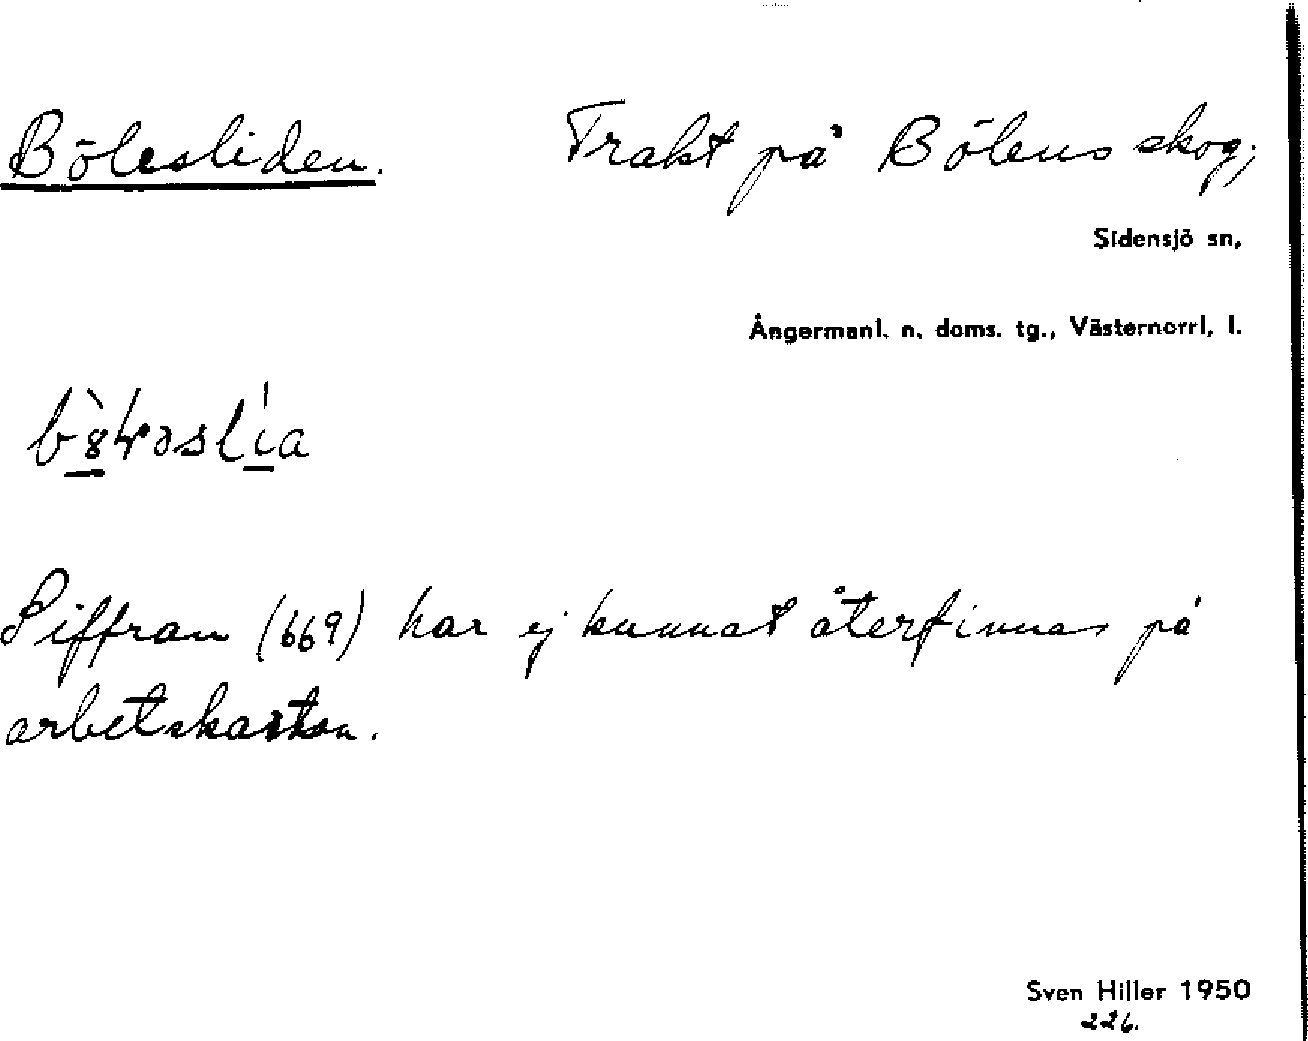 Bölesliden. Trakt på Bölens skog;
Sidensjö sn,
Ångermanl. n. doms. tg., Västernorrl. l.
Siffran (669) har ej kunnat återfinnas på
arbetskartan.
Sven Hiller 1950
226.